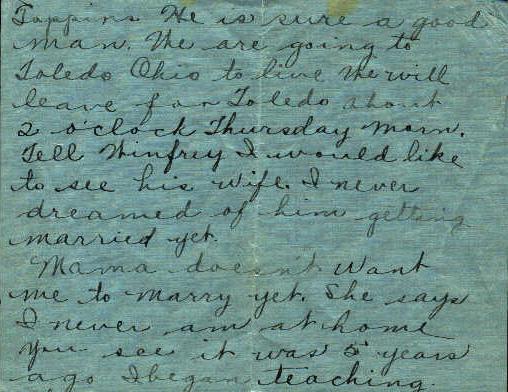 Toppins He is sure a good
man. We are going to
Toledo Ohio to live We will
leave for Toledo about
2 o'clock Thursday morn.
Tell Winfrey I would like
to see his wife. I never
dreamed of him getting
married yet.
Mama doesn't want
me to marry yet. She says
I never am at home
You see it was 5 years
ago I began teaching